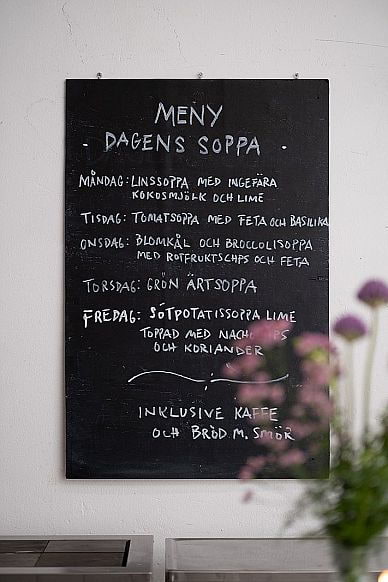 MENY
- DAGENS SOPPA -
MÅNDAG: LINSSOPPA MED INGEFÄRA
KOKOSMJÖLK OCH LIME
TISDAG: TOMATSOPPA MED FETA OCH BASILIKA
ONSDAG: BLOMKÅL OCH BROCCOLISOPPA
MED ROTFRUKTSCHPS OCH FETA
TORSDAG: GRÖN ÄRTSOPPA
FREDAG: SÖTPOTATISSOPPA LIME
TOPPAD MED
OCH KORIANDER
INKLUSIVE KAFFE
OCH BRÖD M. SMÖR